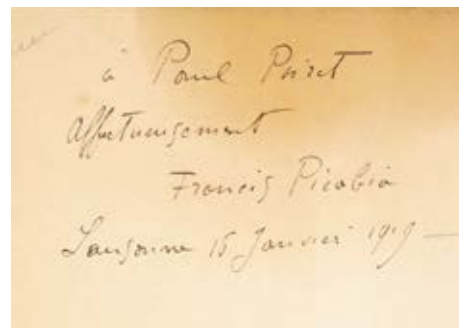 à Paul Poiret
Affectueusement
Francis Picabia
Lausanne 15 Janvier 1919 —